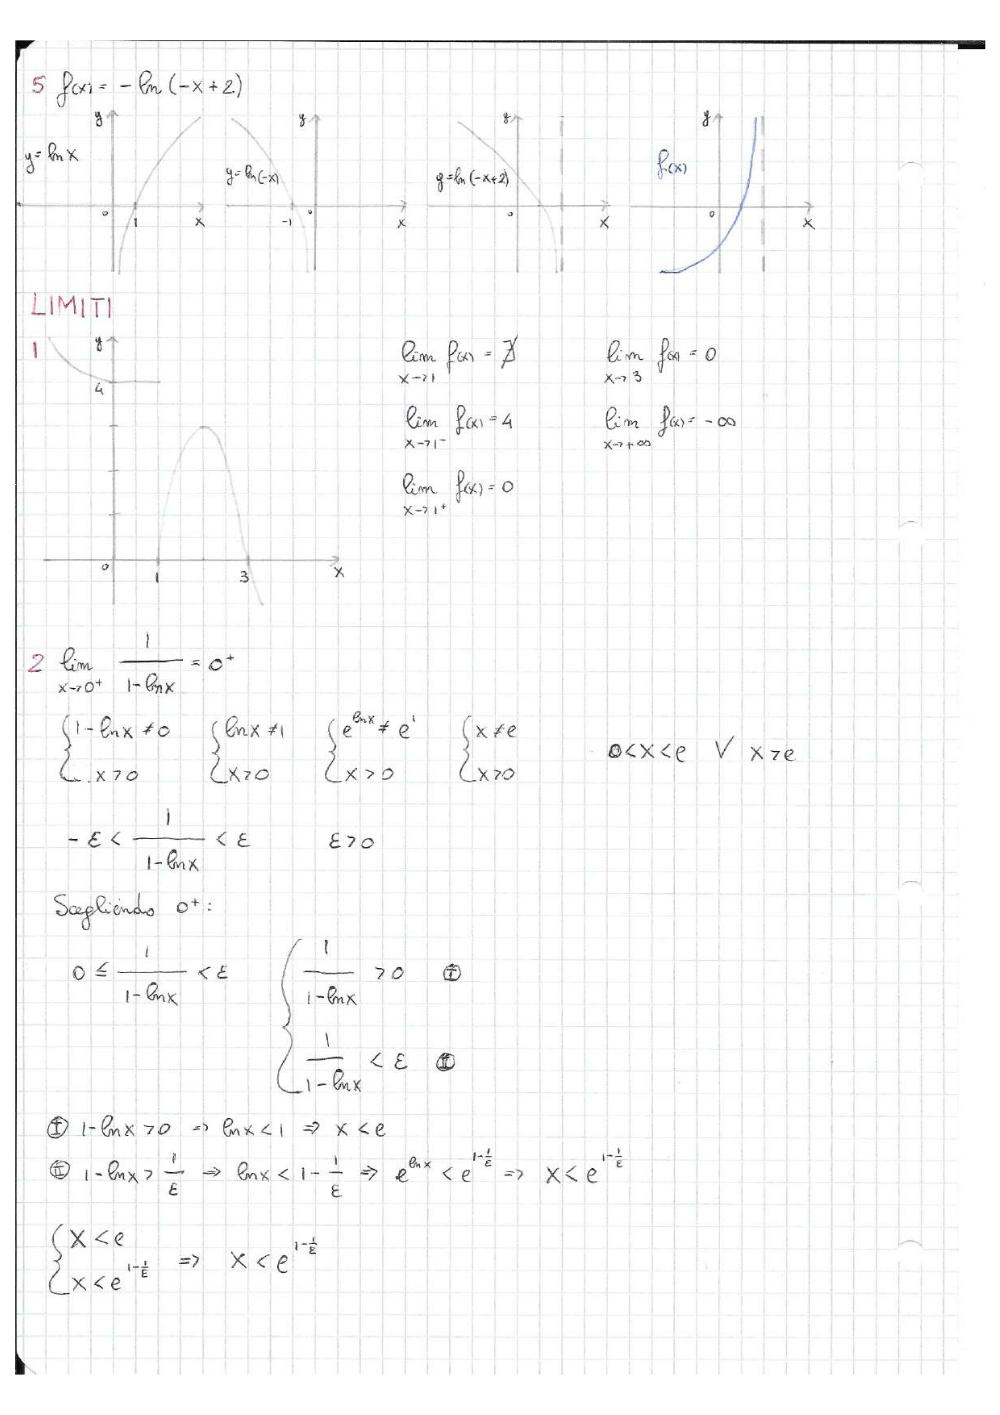 5 f(x) = - ln (-x+2)
y y y y
y = ln x
y = ln(-x)
y = ln(-x+2)
f(x)
0 1 x -1 0 x 0 x 0 x
LIMITI
1
y
4
0 1 3 x
lim x→1 f(x) = ∄
lim x→3 f(x) = 0
lim x→1⁻ f(x) = 4
lim x→+∞ f(x) = -∞
lim x→1⁺ f(x) = 0
2 lim x→0⁺ 1/(1-ln x) = 0⁺
{ 1-ln x ≠ 0 { ln x ≠ 1 { e^(ln x) ≠ e¹ { x ≠ e
x > 0 x > 0 x > 0 x > 0 0 < x < e ∨ x > e
-ε < 1/(1-ln x) < ε ε > 0
Scegliendo 0⁺:
0 ≤ 1/(1-ln x) < ε { 1/(1-ln x) > 0 Ⓘ
1/(1-ln x) < ε Ⓘⓘ
Ⓘ 1-ln x > 0 => ln x < 1 => x < e
Ⓘⓘ 1-ln x > 1/ε => ln x < 1 - 1/ε => e^(ln x) < e^(1-1/ε) => x < e^(1-1/ε)
{ x < e
x < e^(1-1/ε) => x < e^(1-1/ε)